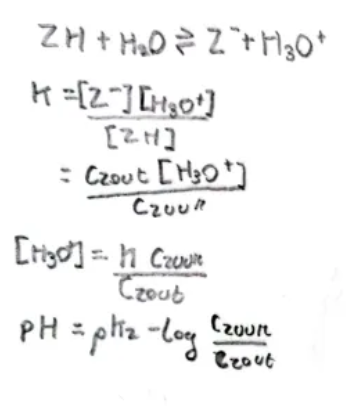 ZH + H₂O ⇌ Z⁻ + H₃O⁺
K = [Z⁻][H₃O⁺] / [ZH]
= Czout [H₃O⁺] / Czuur
[H₃O⁺] = K Czuur / Czout
pH = pKz - log Czuur / Czout